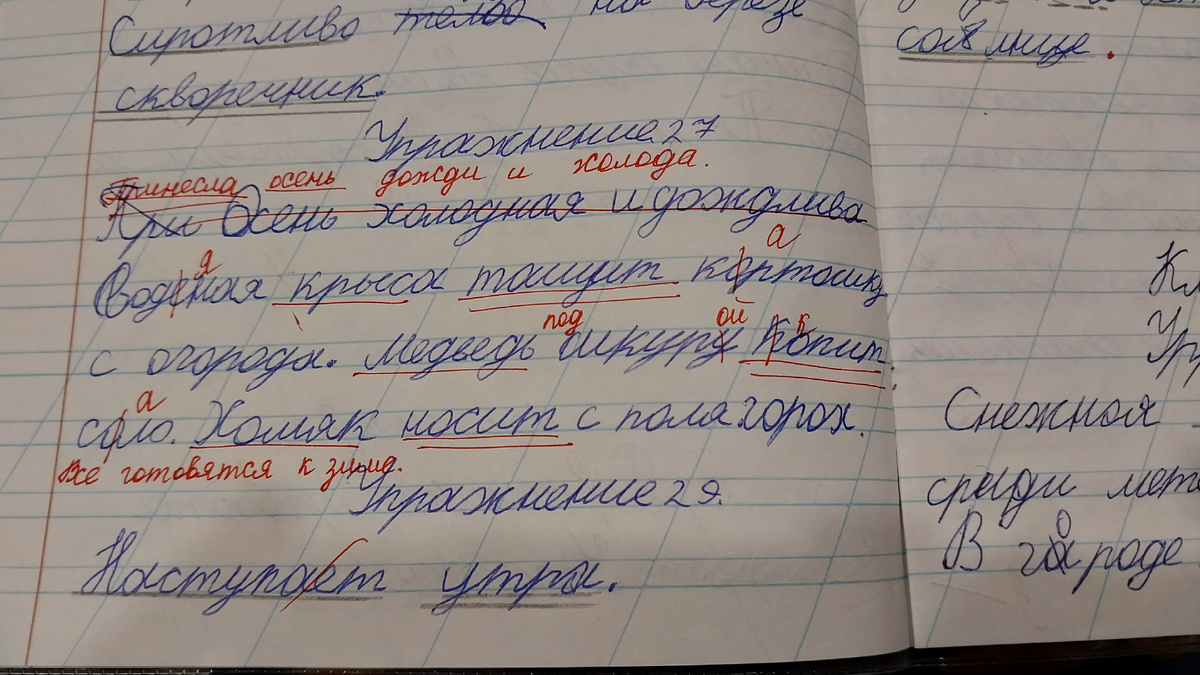 Сиротливо на березе
скворечник.
Упражнение 27
Принесла осень дожди и холода.
При Осень холодная и дождлива
я а
Водяная крыса тащит картошку
под ой к
с огорода. Медведь шкуру Копит
а
сало. Хомяк носит с поля горох.
Все готовятся к зиме.
Упражнение 29.
Наступает утра.
солнце.
Снежная
среди мете
В городе